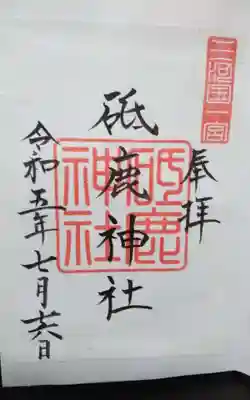 三河国一宮
奉拝
砥鹿神社
砥鹿神社
令和五年七月十六日